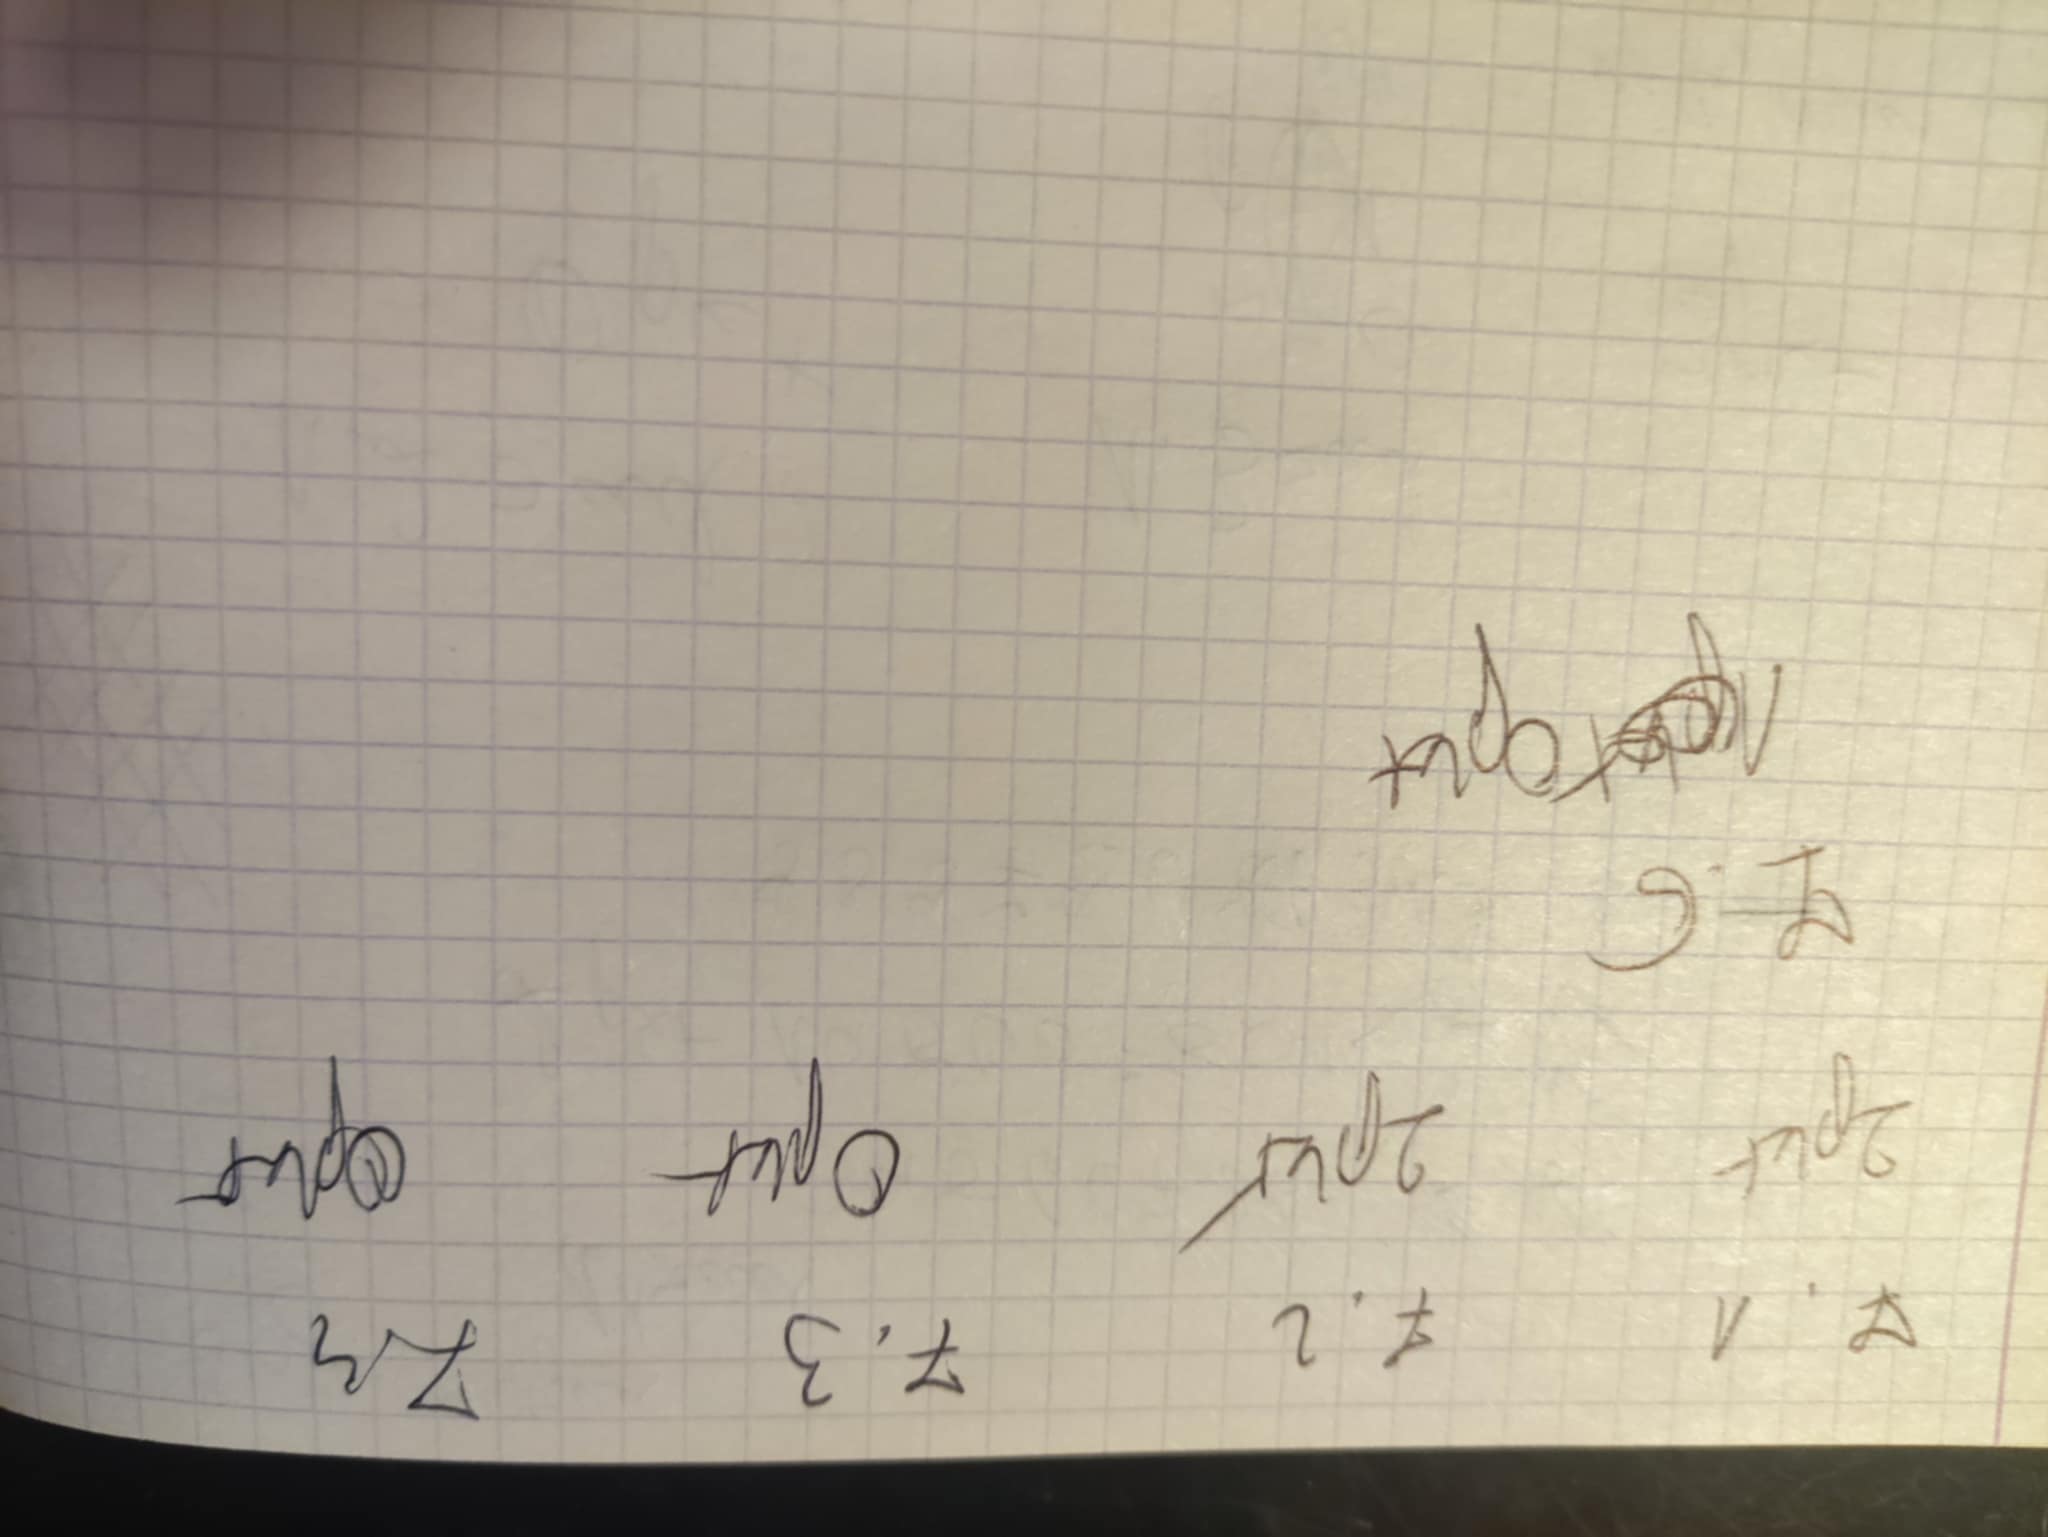 7.1 7.2 7.3 7.4
2pkt 2pkt 0pkt 0pkt
7.6
1pkt 0pkt